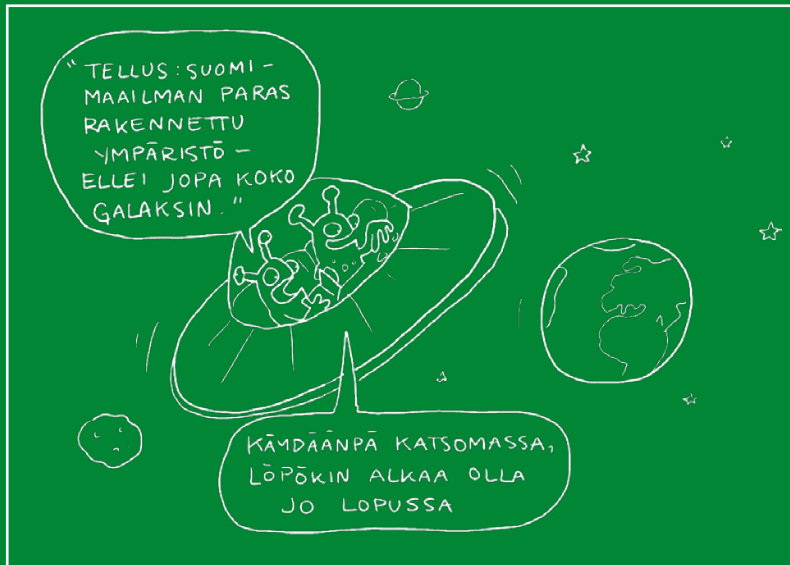 "TELLUS: SUOMI –
MAAILMAN PARAS
RAKENNETTU
YMPÄRISTÖ –
ELLEI JOPA KOKO
GALAKSIN."
KÄYDÄÄNPÄ KATSOMASSA,
LÖPÖKIN ALKAA OLLA
JO LOPUSSA